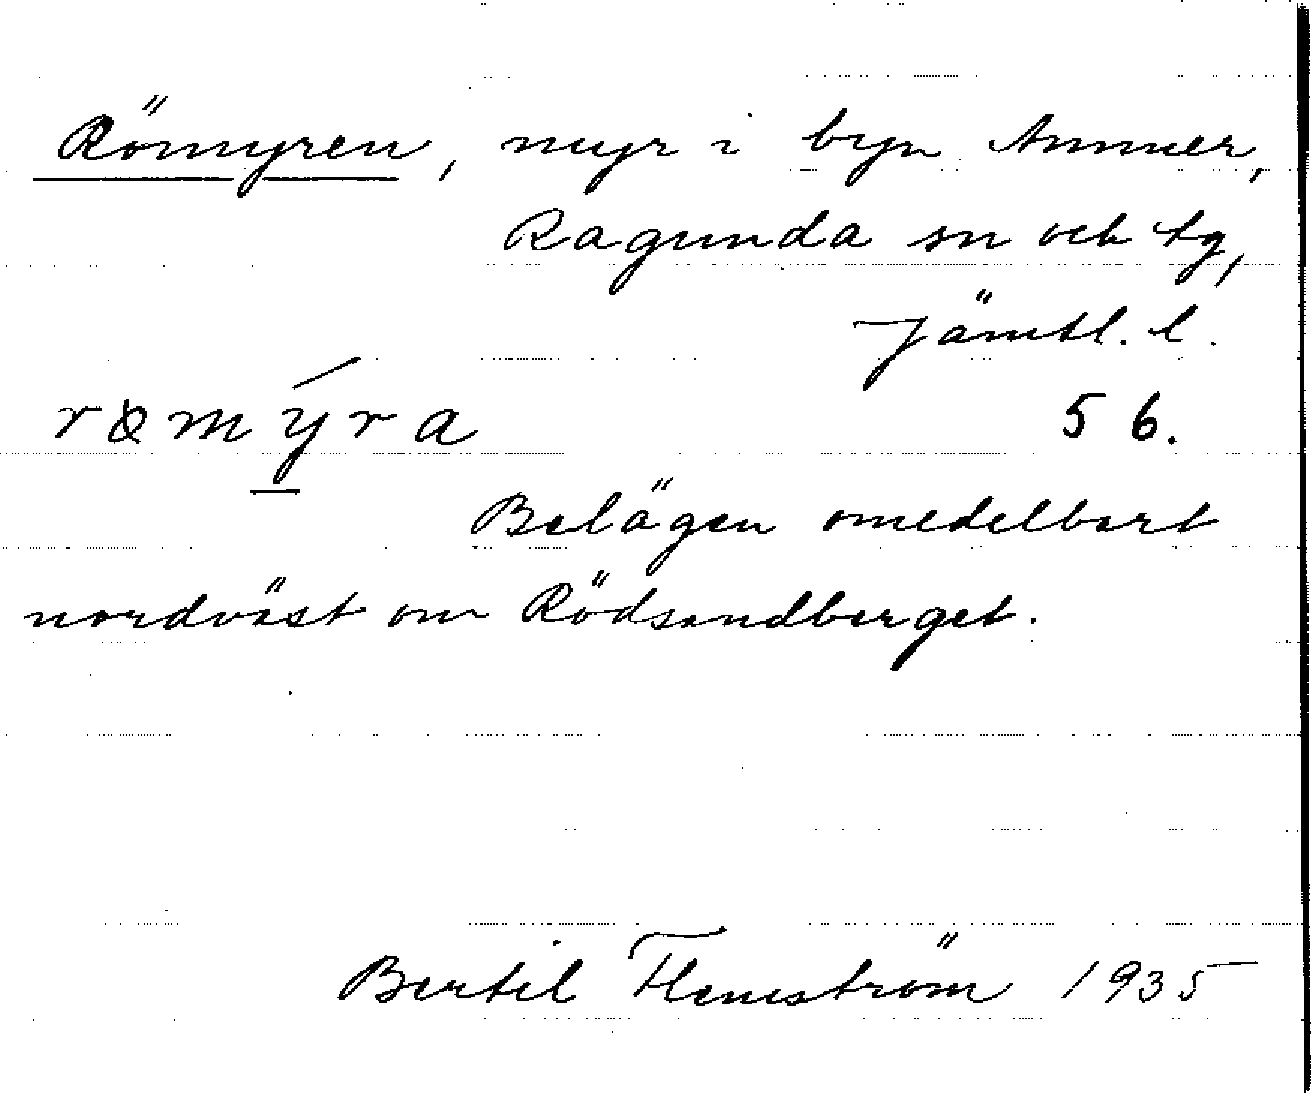 Römyren, myr i byn Ammer,
Ragunda sn och tg,
Jämtl. l.
römýra 56.
Belägen omedelbart
nordväst om Rödsandberget.
Bertil Flemström 1935